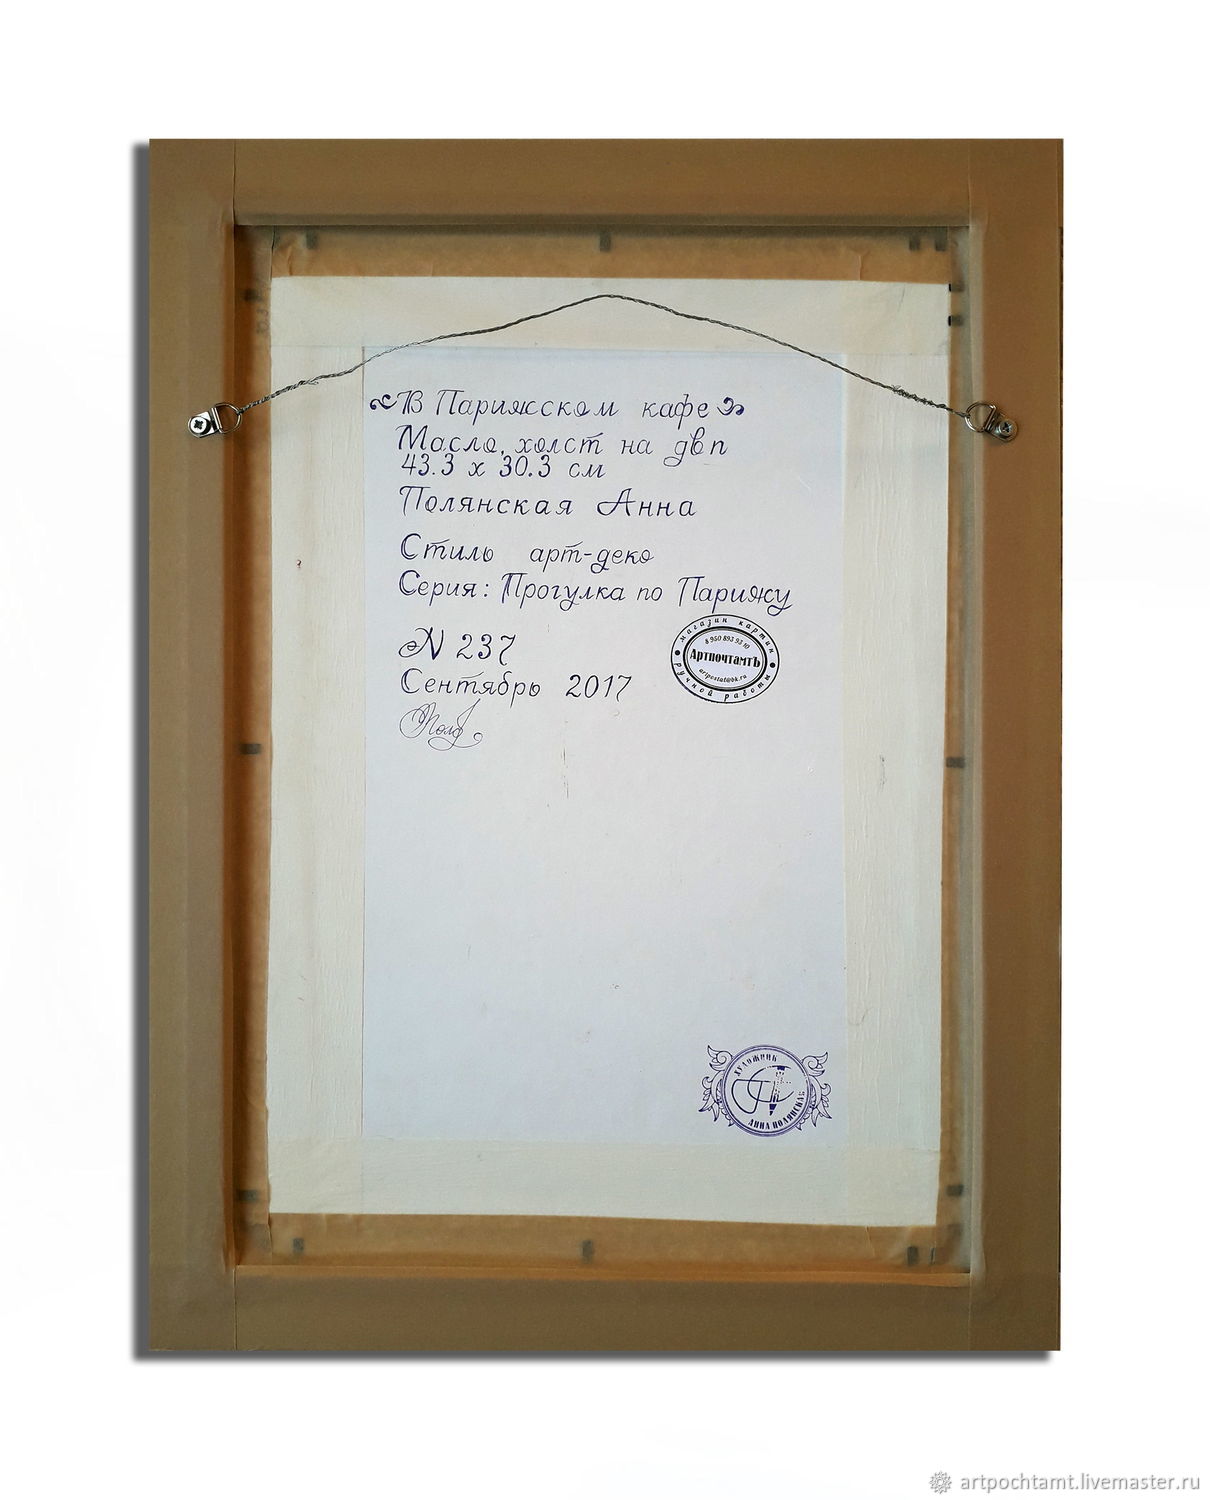 В Парижском кафе
Масло, холст на двп
43.3 х 30.3 см
Полянская Анна
Стиль арт-деко
Серия: Прогулка по Парижу
N 237
Сентябрь 2017
магазин картин
8 950 893 93 10
АртпочтамтЪ
artpostat@bk.ru
ручной работы
ХУДОЖНИК
АННА ПОЛЯНСКАЯ
artpochtamt.livemaster.ru